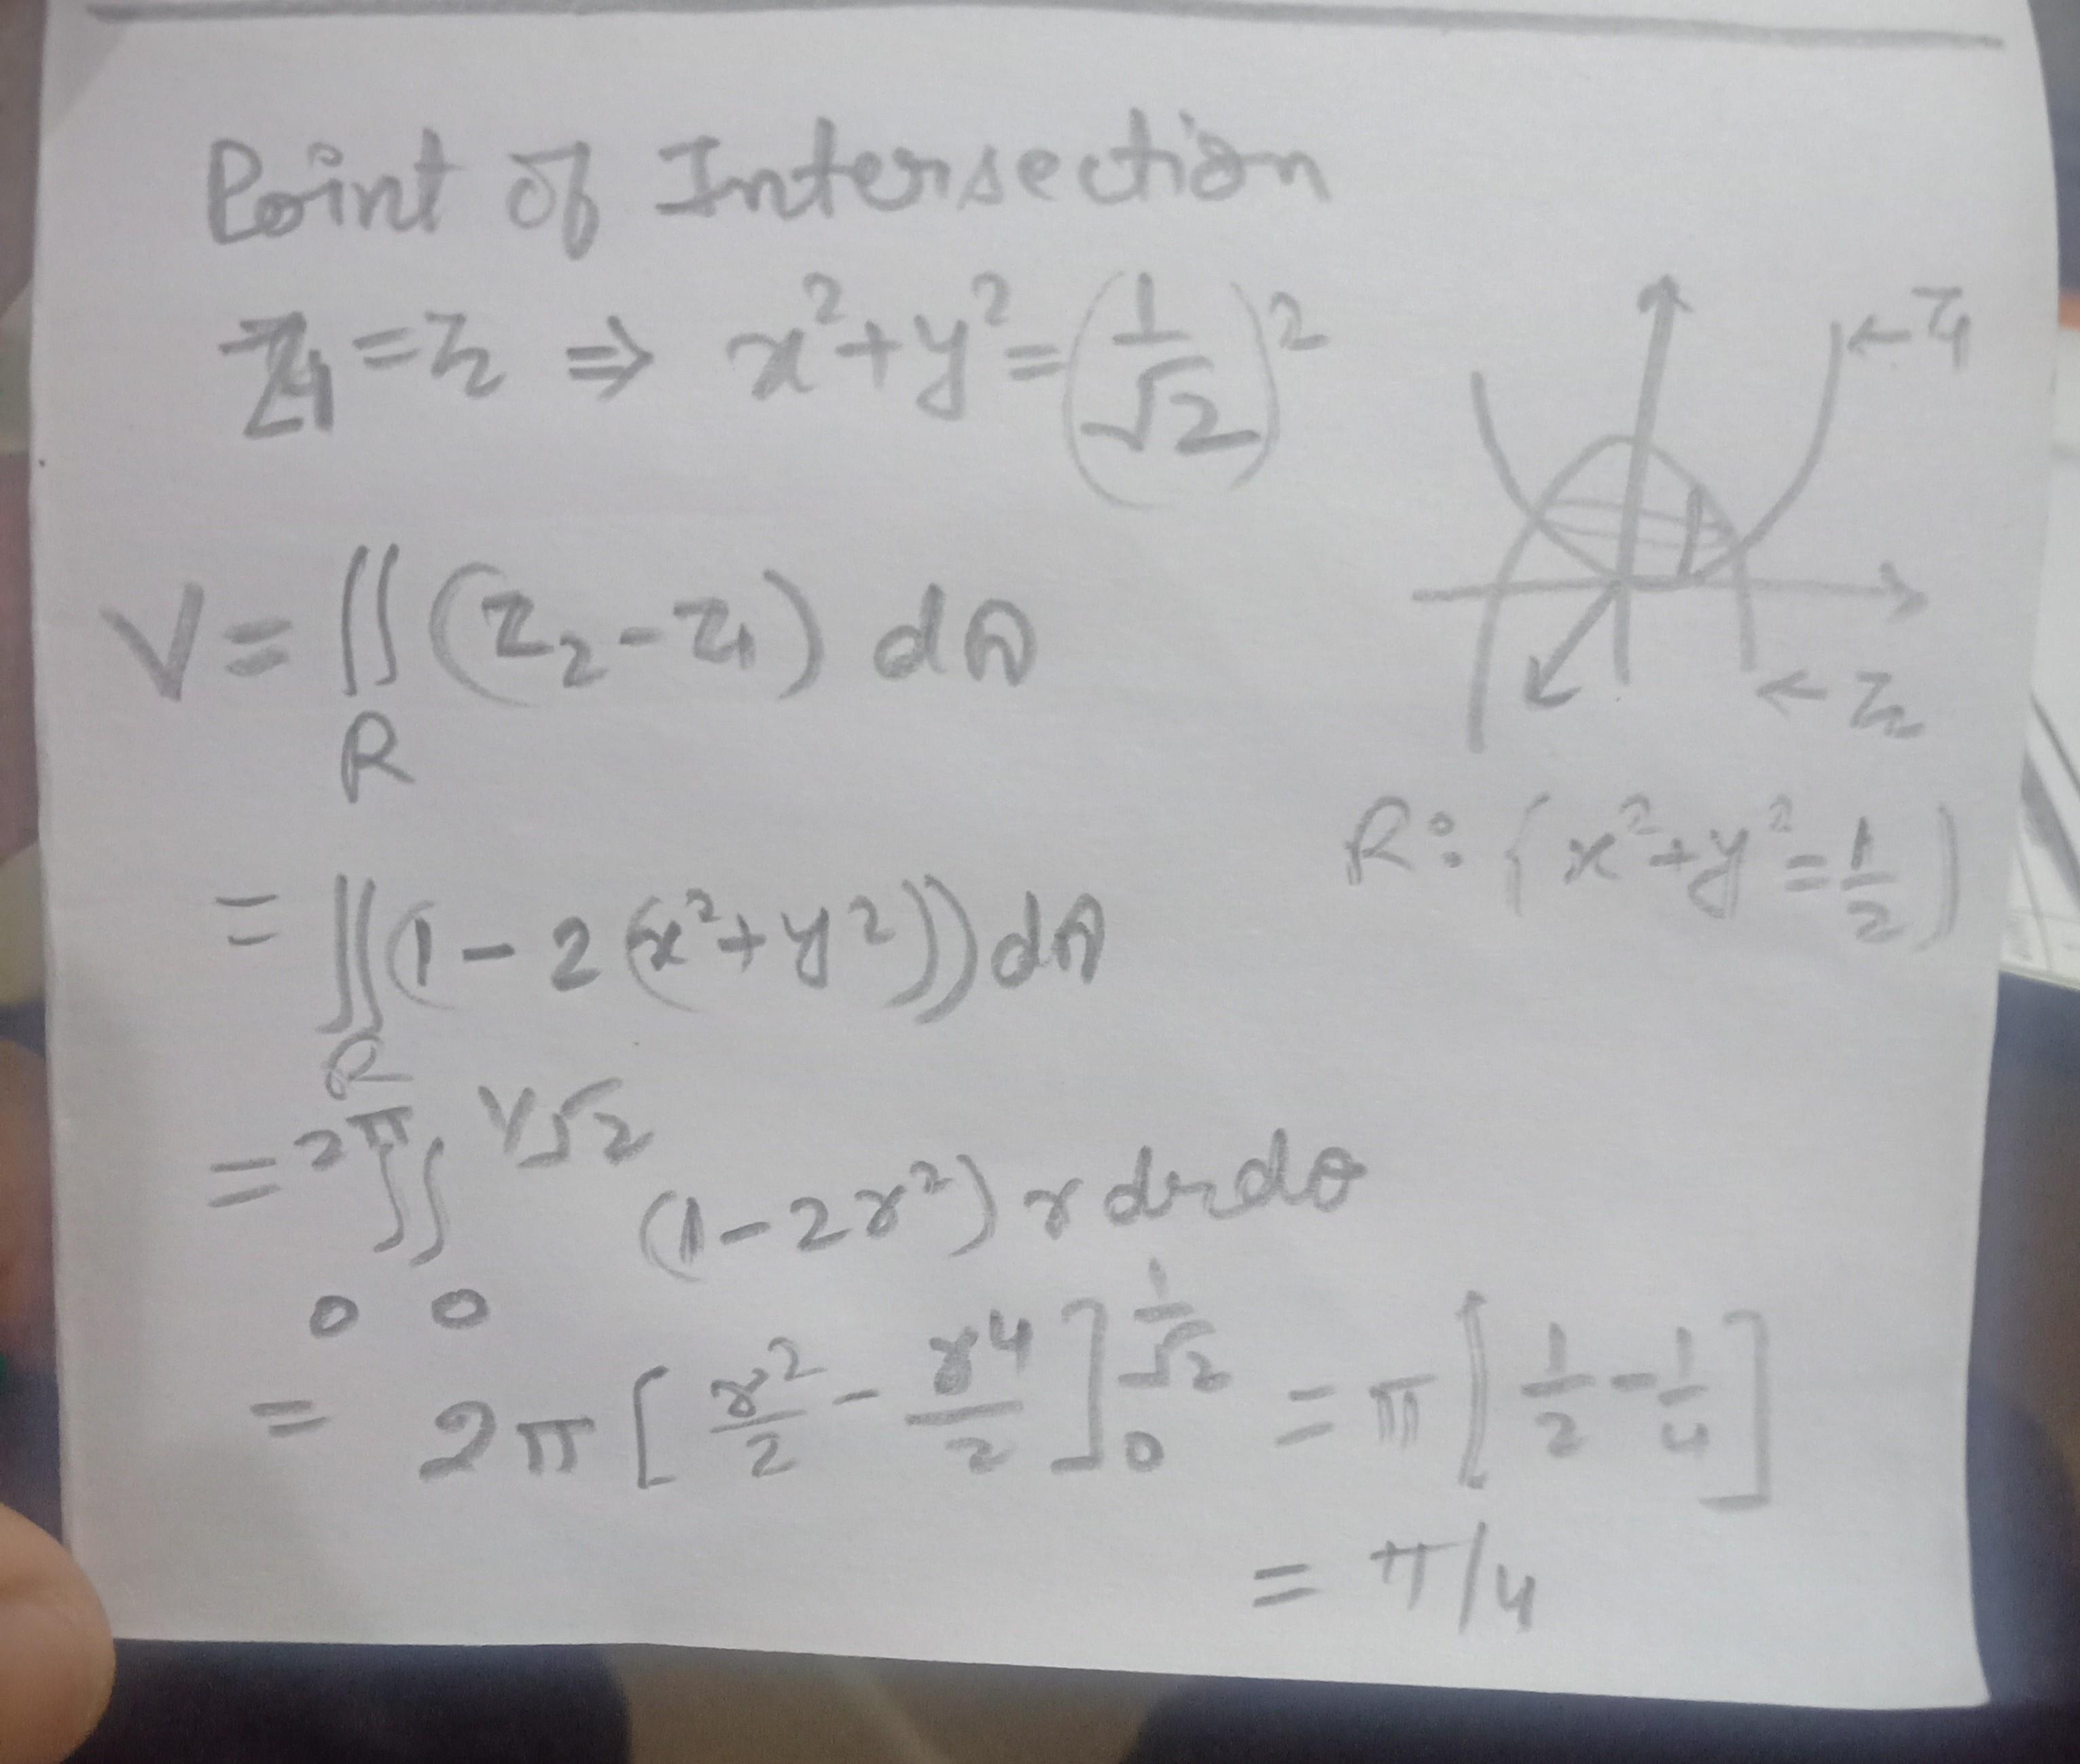 Point of Intersection
Z₁ = Z₂ ⇒ x² + y² = (1/√2)²
← Z₁
← Z₂
V = ∬_R (Z₂ - Z₁) dA
R: { x² + y² = 1/2 }
= ∬_R (1 - 2(x² + y²)) dA
= ∫₀^2π ∫₀^1/√2 (1 - 2r²) r dr dθ
= 2π [r²/2 - r⁴/2]₀^1/√2 = π [1/2 - 1/4]
= π/4